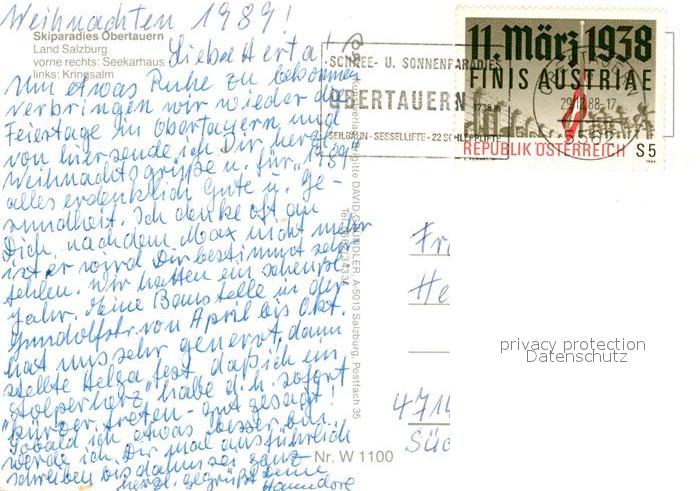 Weihnachten 1989!
Skiparadies Obertauern
Land Salzburg
vorne rechts: Seekarhaus
links: Kringsalm
Liebe Herta!
Um etwas Ruhe zu bekommen
verbringen wir wieder die
Feiertage in Obertauern und
von hier sende ich Dir herzl.
Weihnachtsgrüße u. für 1989
alles erdenklich Gute u. Ge-
sundheit. Ich denke oft an
Dich, nachdem Max nicht mehr
ist er wird Dir bestimmt sehr
fehlen. Wir hatten ein
Jahr. Meine Baustelle in der
von April bis Okt.
hat uns sehr genervt, dann
stellte Helga fest, daß ich ein
"Stolperherz" habe d.h. sofort
kürzer treten - gut gesagt!
Sobald ich etwas besser bin
werde ich Dir mal ausführlich
schreiben bis dahin sei ganz
herzl. gegrüßt Deine
Hannelore
SCHNEE- U. SONNENPARADIES
OBERTAUERN
1738 m
SEILBAHN - SESSELLIFTE - 22 SCHLEPPLIFTE
29.12.88-17
11. März 1938
FINIS AUSTRIAE
REPUBLIK ÖSTERREICH S 5
DAVID-GRÜNDLER, A-5013 Salzburg, Postfach 35
Fr
He
471
Süd
Nr. W 1100
privacy protection
Datenschutz